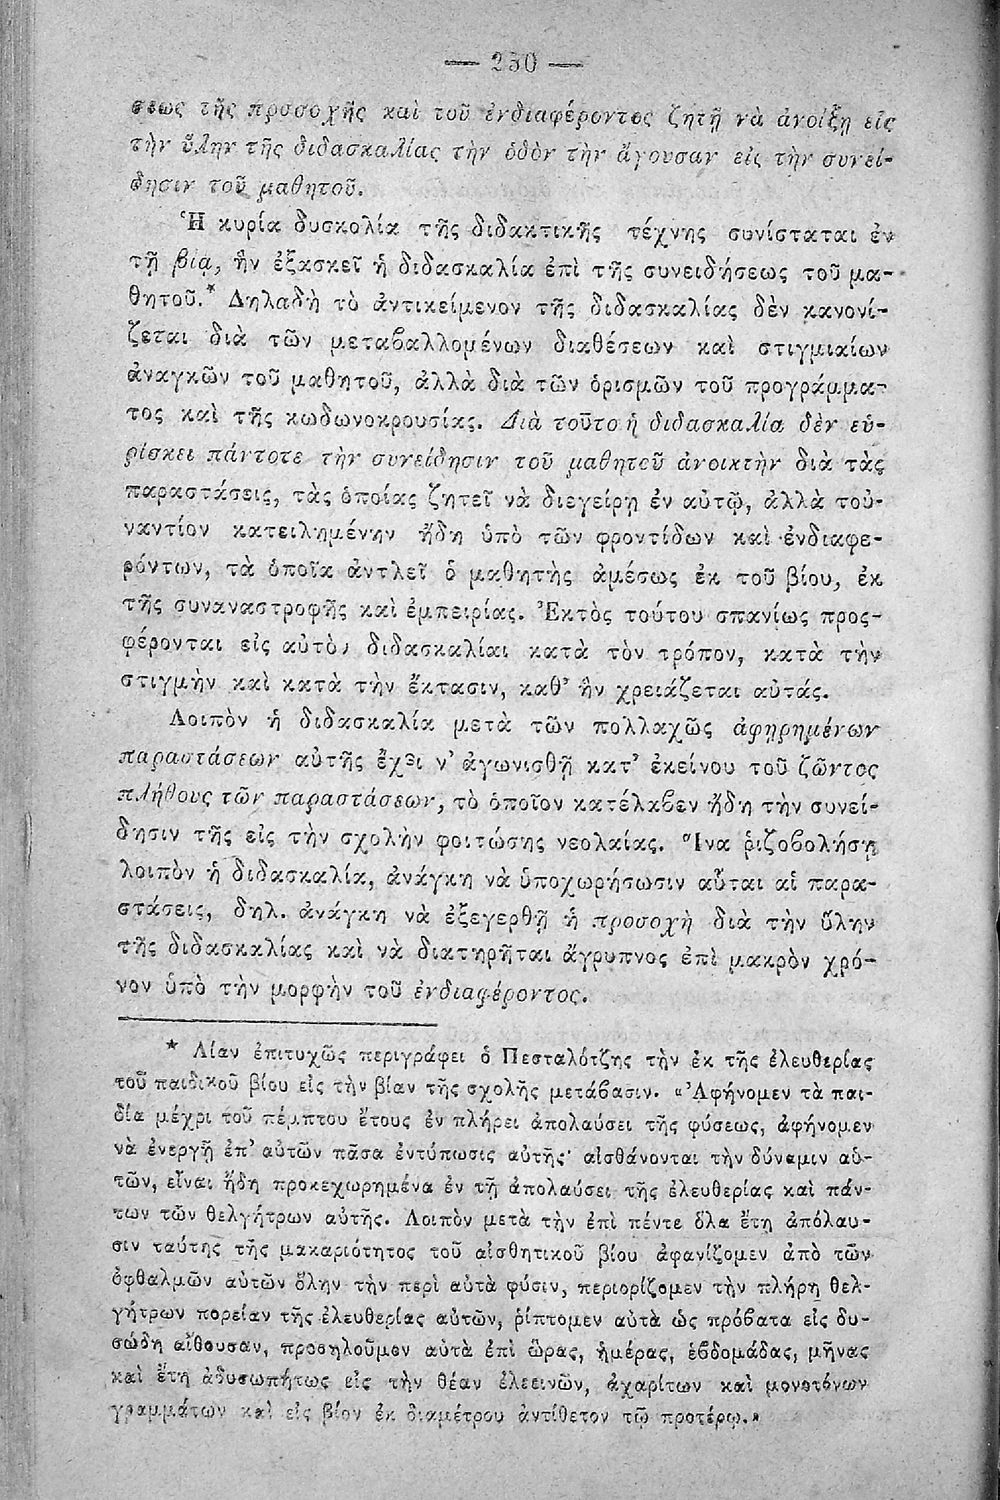 — 230 —
σεως τῆς προσοχῆς καὶ τοῦ ἐνδιαφέροντος ζητῇ νὰ ἀνοίξῃ εἰς
τὴν ὕλην τῆς διδασκαλίας τὴν ὁδὸν τὴν ἄγουσαν εἰς τὴν συνεί-
δησιν τοῦ μαθητοῦ.
Ἡ κυρία δυσκολία τῆς διδακτικῆς τέχνης συνίσταται ἐν
τῇ βίᾳ, ἣν ἐξασκεῖ ἡ διδασκαλία ἐπὶ τῆς συνειδήσεως τοῦ μα-
θητοῦ.* Δηλαδὴ τὸ ἀντικείμενον τῆς διδασκαλίας δὲν κανονί-
ζεται διὰ τῶν μεταβαλλομένων διαθέσεων καὶ στιγμιαίων
ἀναγκῶν τοῦ μαθητοῦ, ἀλλὰ διὰ τῶν ὁρισμῶν τοῦ προγράμμα-
τος καὶ τῆς κωδωνοκρουσίας. Διὰ τοῦτο ἡ διδασκαλία δὲν εὑ-
ρίσκει πάντοτε τὴν συνείδησιν τοῦ μαθητοῦ ἀνοικτὴν διὰ τὰς
παραστάσεις, τὰς ὁποίας ζητεῖ νὰ διεγείρῃ ἐν αὐτῷ, ἀλλὰ τοὐ-
ναντίον κατειλημένην ἤδη ὑπὸ τῶν φροντίδων καὶ ἐνδιαφε-
ρόντων, τὰ ὁποῖα ἀντλεῖ ὁ μαθητὴς ἀμέσως ἐκ τοῦ βίου, ἐκ
τῆς συναναστροφῆς καὶ ἐμπειρίας. Ἐκτὸς τούτου σπανίως προς-
φέρονται εἰς αὐτὸν διδασκαλίαι κατὰ τὸν τρόπον, κατὰ τὴν
στιγμὴν καὶ κατὰ τὴν ἔκτασιν, καθ' ἣν χρειάζεται αὐτάς.
Λοιπὸν ἡ διδασκαλία μετὰ τῶν πολλαχῶς ἀφῃρημένων
παραστάσεων αὐτῆς ἔχει ν' ἀγωνισθῇ κατ' ἐκείνου τοῦ ζῶντος
πλήθους τῶν παραστάσεων, τὸ ὁποῖον κατέλαβεν ἤδη τὴν συνεί-
δησιν τῆς εἰς τὴν σχολὴν φοιτώσης νεολαίας. Ἵνα ῥιζοβολήσῃ
λοιπὸν ἡ διδασκαλία, ἀνάγκη νὰ ὑποχωρήσωσιν αὗται αἱ παρα-
στάσεις, δηλ. ἀνάγκη νὰ ἐξεγερθῇ ἡ προσοχὴ διὰ τὴν ὕλην
τῆς διδασκαλίας καὶ νὰ διατηρῆται ἄγρυπνος ἐπὶ μακρὸν χρό-
νον ὑπὸ τὴν μορφὴν τοῦ ἐνδιαφέροντος.
* Λίαν ἐπιτυχῶς περιγράφει ὁ Πεσταλότζης τὴν ἐκ τῆς ἐλευθερίας
τοῦ παιδικοῦ βίου εἰς τὴν βίαν τῆς σχολῆς μετάβασιν. «Ἀφήνομεν τὰ παι-
δία μέχρι τοῦ πέμπτου ἔτους ἐν πλήρει ἀπολαύσει τῆς φύσεως, ἀφήνομεν
νὰ ἐνεργῇ ἐπ' αὐτῶν πᾶσα ἐντύπωσις αὐτῆς· αἰσθάνονται τὴν δύναμιν αὑ-
τῶν, εἶναι ἤδη προκεχωρημένα ἐν τῇ ἀπολαύσει τῆς ἐλευθερίας καὶ πάν-
των τῶν θελγήτρων αὐτῆς. Λοιπὸν μετὰ τὴν ἐπὶ πέντε ὅλα ἔτη ἀπόλαυ-
σιν ταύτης τῆς μακαριότητος τοῦ αἰσθητικοῦ βίου ἀφανίζομεν ἀπὸ τῶν
ὀφθαλμῶν αὐτῶν ὅλην τὴν περὶ αὐτὰ φύσιν, περιορίζομεν τὴν πλήρη θελ-
γήτρων πορείαν τῆς ἐλευθερίας αὐτῶν, ῥίπτομεν αὐτὰ ὡς πρόβατα εἰς δυ-
σώδη αἴθουσαν, προσηλοῦμεν αὐτὰ ἐπὶ ὥρας, ἡμέρας, ἑβδομάδας, μῆνας
καὶ ἔτη ἀδυσωπήτως εἰς τὴν θέαν ἐλεεινῶν, ἀχαρίτων καὶ μονοτόνων
γραμμάτων καὶ εἰς βίον ἐκ διαμέτρου ἀντίθετον τῷ προτέρῳ.»